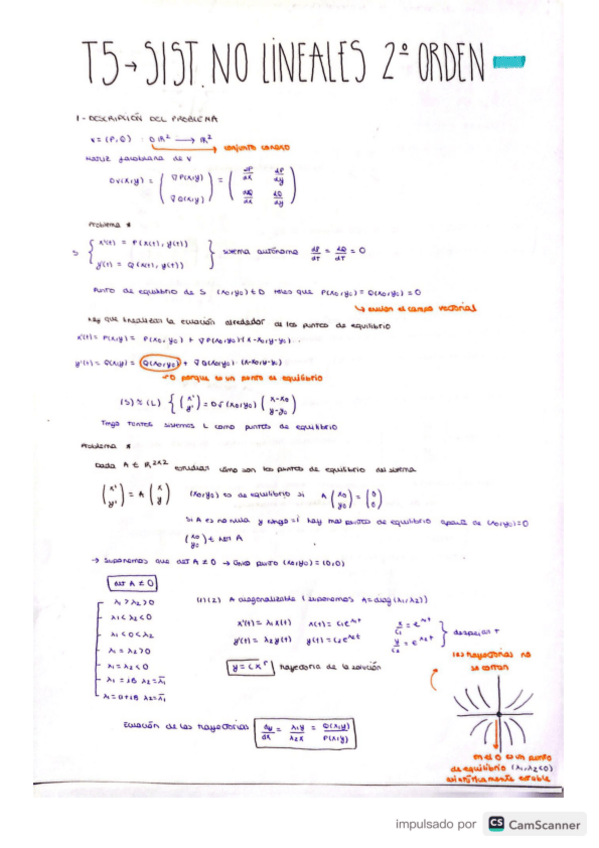 T5 → SIST. NO LINEALES 2º ORDEN
1 - DESCRIPCIÓN DEL PROBLEMA
v = (P, Q) D ℝ² → ℝ²
conjunto conexo
Matriz jacobiana de v
DV(x,y) = ( ∇P(x,y) / ∇Q(x,y) ) = ( dP/dx dP/dy / dQ/dx dQ/dy )
Problema *
S { x'(t) = P(x(t), y(t)) / y'(t) = Q(x(t), y(t)) } sistema autónomo dP/dT = dQ/dT = 0
Punto de equilibrio de S (x₀,y₀) ∈ D tales que P(x₀,y₀) = Q(x₀,y₀) = 0
↳ anulan el campo vectorial
Hay que linealizar la ecuación alrededor de los puntos de equilibrio
x'(t) = P(x,y) = P(x₀, y₀) + ∇P(x₀,y₀)·(x-x₀, y-y₀)
y'(t) = Q(x,y) = Q(x₀,y₀) + ∇Q(x₀,y₀) (x-x₀, y-y₀)
→ 0 porque es un punto de equilibrio
(S) ≈ (L) { (x' / y') = DV(x₀,y₀) (x-x₀ / y-y₀)
Tengo tantos sistemas L como puntos de equilibrio
Problema *
Dada A ∈ ℝ²ˣ² estudiar cómo son los puntos de equilibrio del sistema
(x' / y') = A (x / y) (x₀,y₀) es de equilibrio si A (x₀ / y₀) = (0 / 0)
Si A es no nula y rango = 1 hay más puntos de equilibrio aparte de (x₀,y₀) = 0
(x₀ / y₀) ∈ ker A
→ Suponemos que det A ≠ 0 → Único punto (x₀,y₀) = (0,0)
det A ≠ 0
λ₁ > λ₂ > 0 (1)(2) A diagonalizable (suponemos A = diag(λ₁,λ₂))
λ₁ < λ₂ < 0 x'(t) = λ₁x(t) x(t) = c₁e^λ₁t x/c₁ = e^λ₁t
λ₁ < 0 < λ₂ y'(t) = λ₂y(t) y(t) = c₂e^λ₂t y/c₂ = e^λ₂t } despejas t
λ₁ = λ₂ > 0
λ₁ = λ₂ < 0 y = cxʳ trayectoria de la solución
λ₁ = iβ λ₂ = λ̄₁
λ₁ = α+iβ λ₂ = λ̄₁
las trayectorias no
se cortan
Ecuación de las trayectorias dy/dx = λ₂y/λ₁x = Q(x,y)/P(x,y)
en el 0 es un punto
de equilibrio (λ₁,λ₂<0)
asintóticamente estable
impulsado por CS CamScanner